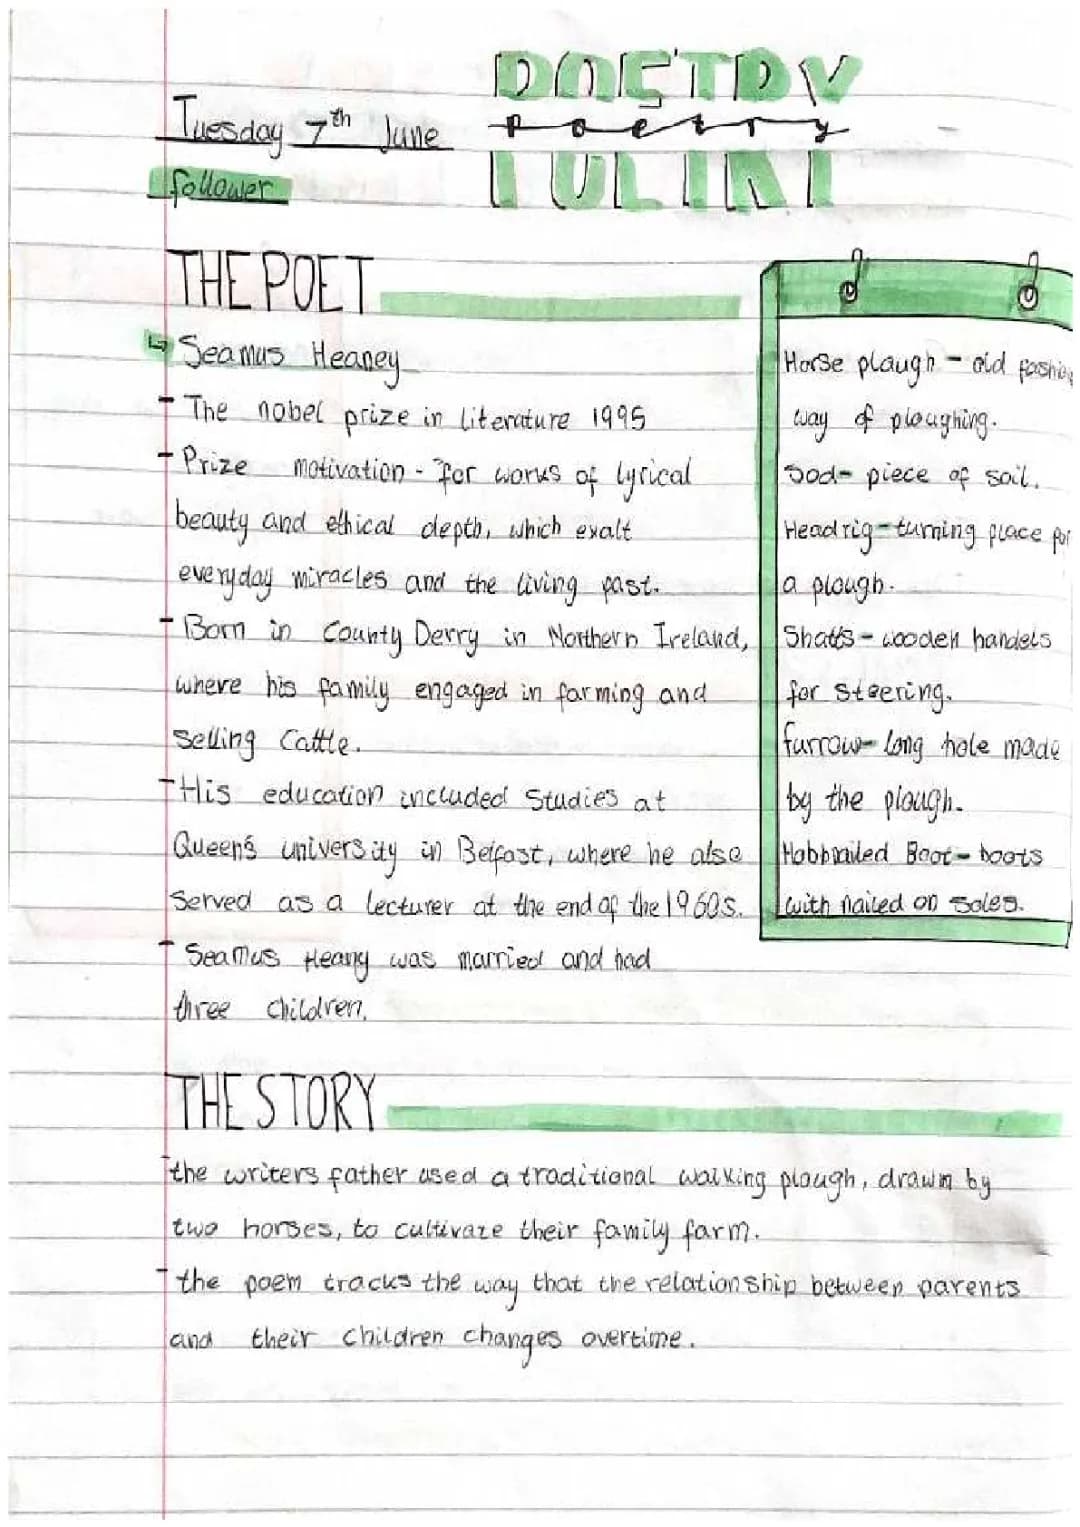 POETRY
poetry
Tuesday 7th June
follower
THE POET
↳ Seamus Heaney
- The nobel prize in literature 1995
- Prize motivation - "for works of lyrical
beauty and ethical depth, which exalt
everyday miracles and the living past.
- Born in County Derry in Northern Ireland,
where his family engaged in farming and
selling Cattle.
- His education included Studies at
Queen's university in Belfast, where he also
Served as a lecturer at the end of the 1960s.
- Seamus Heany was married and had
three children.
Horse plough - old fashion
way of ploughing.
Sod - piece of soil.
Headrig - turning place for
a plough.
Shafts - wooden handels
for steering.
furrow - long hole made
by the plough.
Hobbnailed Boot - boots
with nailed on soles.
THE STORY
- the writers father used a traditional walking plough, drawn by
two horses, to cultivate their family farm.
- the poem tracks the way that the relationship between parents
and their children changes overtime.